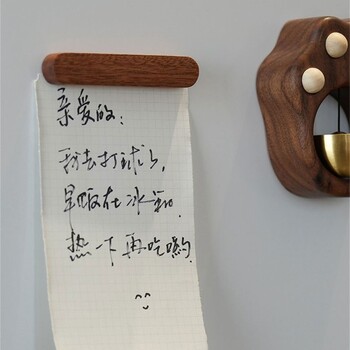 亲爱的:
我去打球了,
早饭在冰箱.
热一下再吃哟.